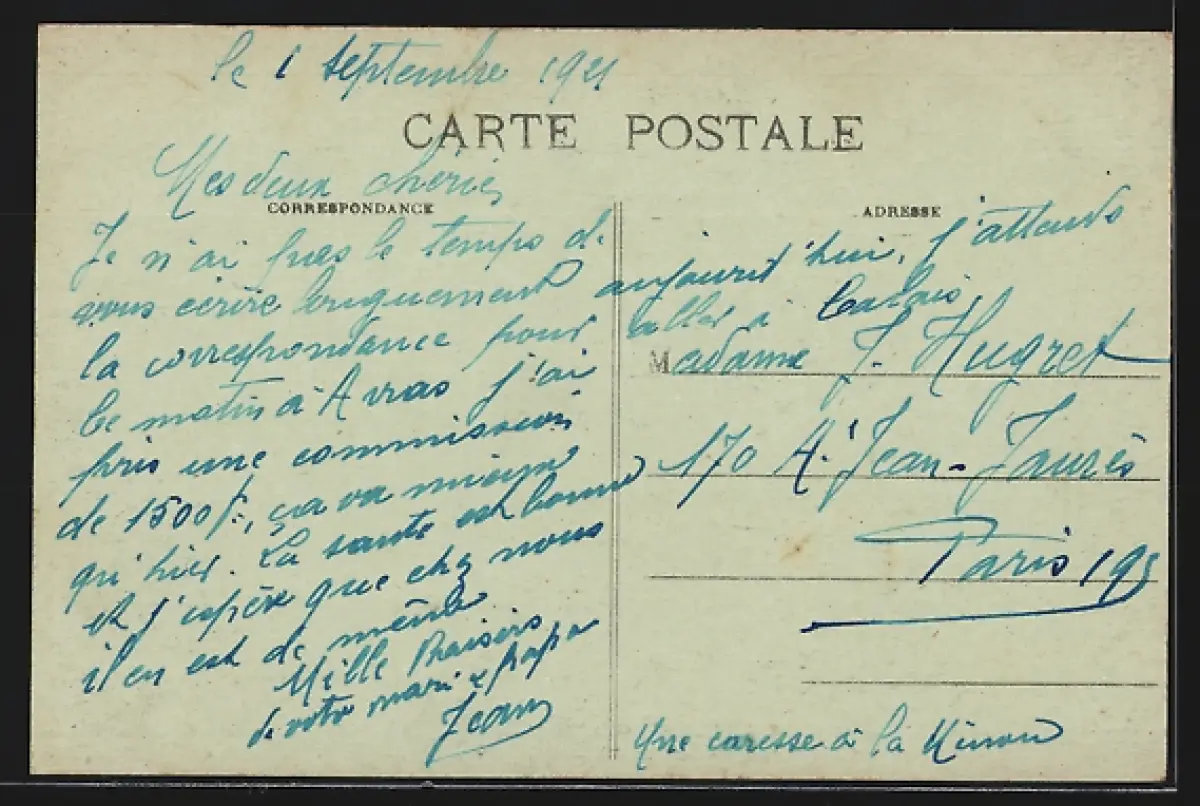 le 1 Septembre 1921
CARTE POSTALE
Mes deux chéries
CORRESPONDANCE
Je n'ai pas le temps de
vous écrire longuement
la correspondance pour
le matin à Arras j'ai
pris une commission
de 1500 f, ça va mieux
qu'hier. La santé est bonne
et j'espère que chez nous
il en est de même
Mille Baisers
de votre mari & papa
Jean
ADRESSE
aujourd'hui, j'attends
aller à Calais
Madame J. Hugret
170 A. Jean-Jaurès
Paris 19e
Une caresse à la Minou